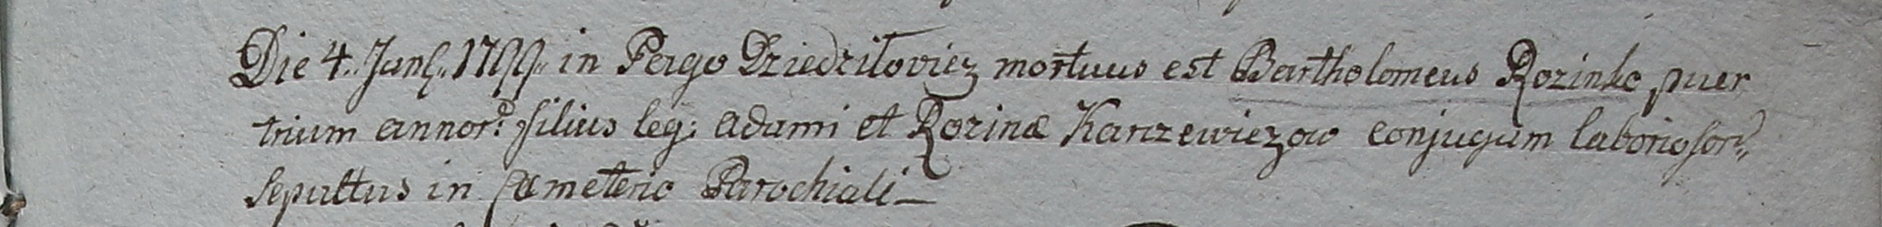 Die 4. Junÿ. 1799. in Pago Dziedziłovicz mortuus est Bartholomeus Rozinko puer
trium annor: filius leg: Adami et Rozinæ Karizewiczow conjugum laboriosor:
sepultus in Cæmeterio Parochiali —